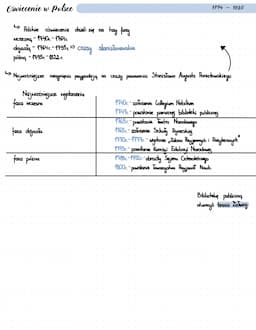 Oświecenie w Polsce
↳ Polskie oświecenie dzieli się na trzy fazy
wczesną - 1740r. - 1764r.
dojrzałą - 1764r. - 1795r. => czasy stanisławowskie
późną - 1795r. - 1822r.
↳ Najważniejsze osiągnięcia przypadają na czasy panowania Stanisława Augusta Poniatowskiego
Najważniejsze wydarzenia
faza wczesna
1740r. - założenie Collegium Nobilium
powstanie pierwszej biblioteki publicznej
faza dojrzała
1765r. - powstanie Teatru Narodowego
założenie Szkoły Rycerskiej
1773r. - powstanie Komisji Edukacji Narodowej
faza późna
1788r. - 1792r. obrady Sejmu Czteroletniego
1800r. - powstanie Towarzystwa Przyjaciół Nauk
Bibliotekę publiczną